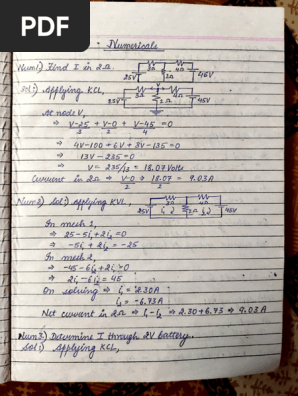 PDF
: Numericals
Num1) Find I in 2Ω.
3Ω 4Ω
25V 2Ω 45V
Sol:) Applying KCL,
3Ω V 4Ω
25V 2Ω 45V
At node V,
⇒ V-25/3 + V-0/2 + V-45/4 = 0
⇒ 4V-100+6V+3V-135=0
⇒ 13V-235=0
⇒ V= 235/13 = 18.07 Volts
Current in 2Ω ⇒ V-0/2 ⇒ 18.07/2 = 9.03A
Num2) Sol:) Applying KVL,
3Ω 4Ω
25V i₁ 2Ω i₂ 45V
In mesh 1,
⇒ 25-5i₁+2i₂=0
⇒ -5i₁+2i₂=-25
In mesh 2,
⇒ -45-6i₂+2i₁=0
⇒ 2i₁-6i₂=45
On solving ⇒ i₁=2.30A
i₂= -6.73A
Net current in 2Ω ⇒ i₁-i₂ ⇒ 2.30+6.73 ⇒ 9.03A
Num3) Determine I through 2V battery.
Sol:) Applying KCL,